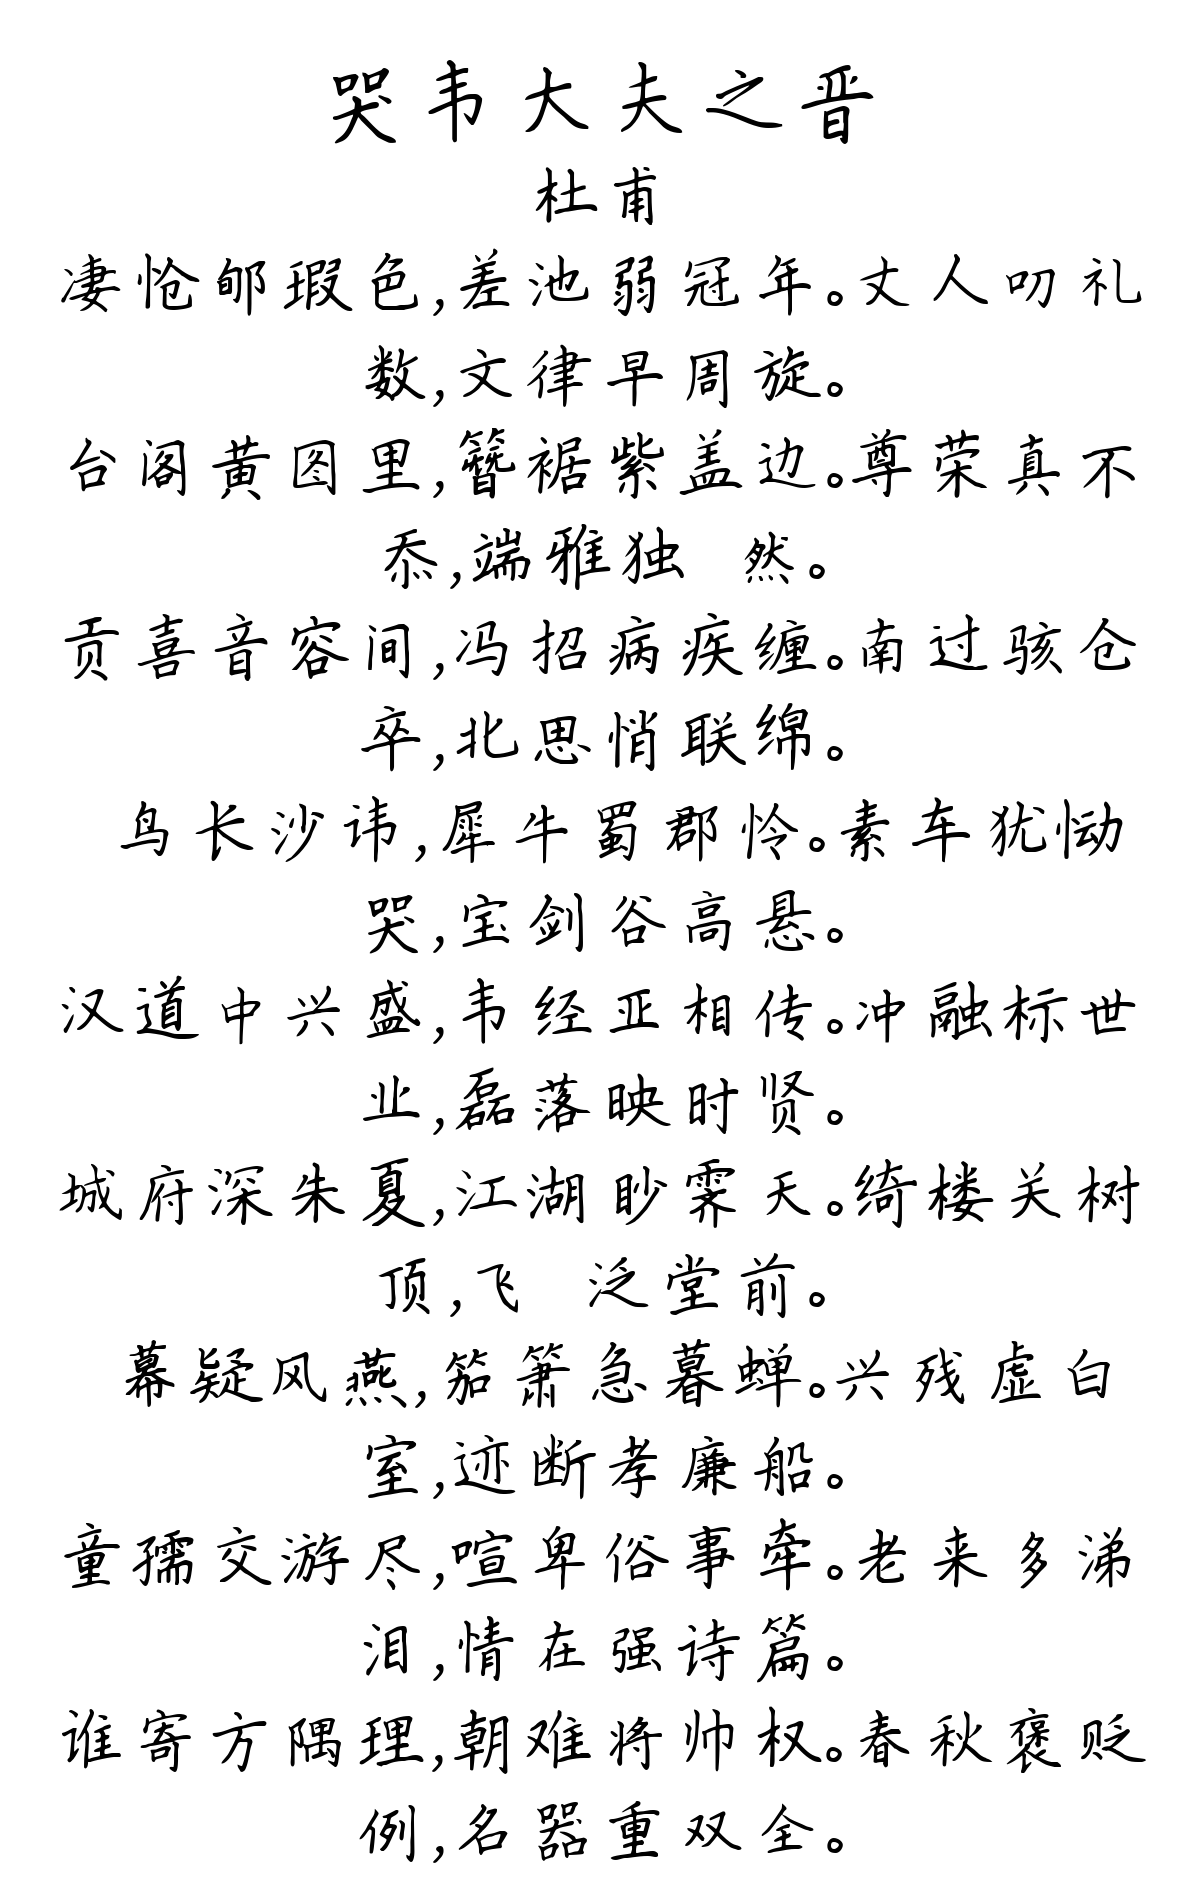 哭韦大夫之晋
杜甫
凄怆郇瑕色,差池弱冠年。丈人叨礼
数,文律早周旋。
台阁黄图里,簪裾紫盖边。尊荣真不
忝,端雅独 然。
贡喜音容间,冯招病疾缠。南过骇仓
卒,北思悄联绵。
鸟长沙讳,犀牛蜀郡怜。素车犹恸
哭,宝剑谷高悬。
汉道中兴盛,韦经亚相传。冲融标世
业,磊落映时贤。
城府深朱夏,江湖眇霁天。绮楼关树
顶,飞 泛堂前。
幕疑风燕,笳箫急暮蝉。兴残虚白
室,迹断孝廉船。
童孺交游尽,喧卑俗事牵。老来多涕
泪,情在强诗篇。
谁寄方隅理,朝难将帅权。春秋褒贬
例,名器重双全。